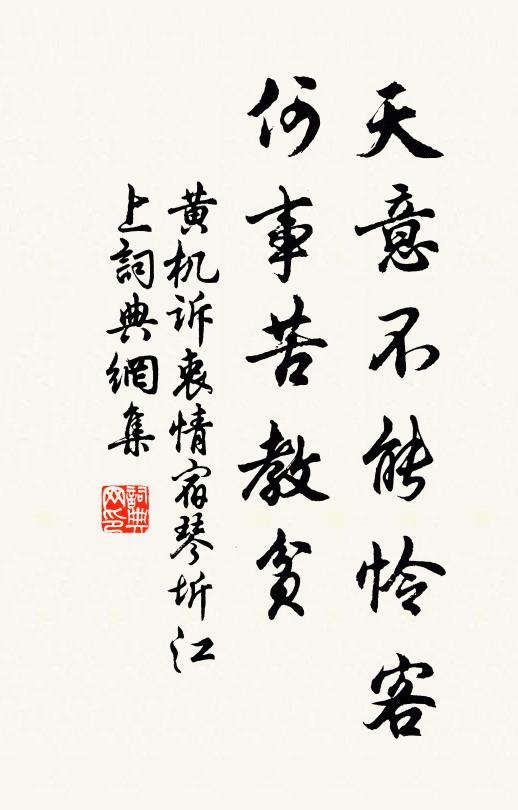 天意不能怜客
何事苦教貧
黄机诉衷情宿琴圻江
上詞典網集
詞典
网印